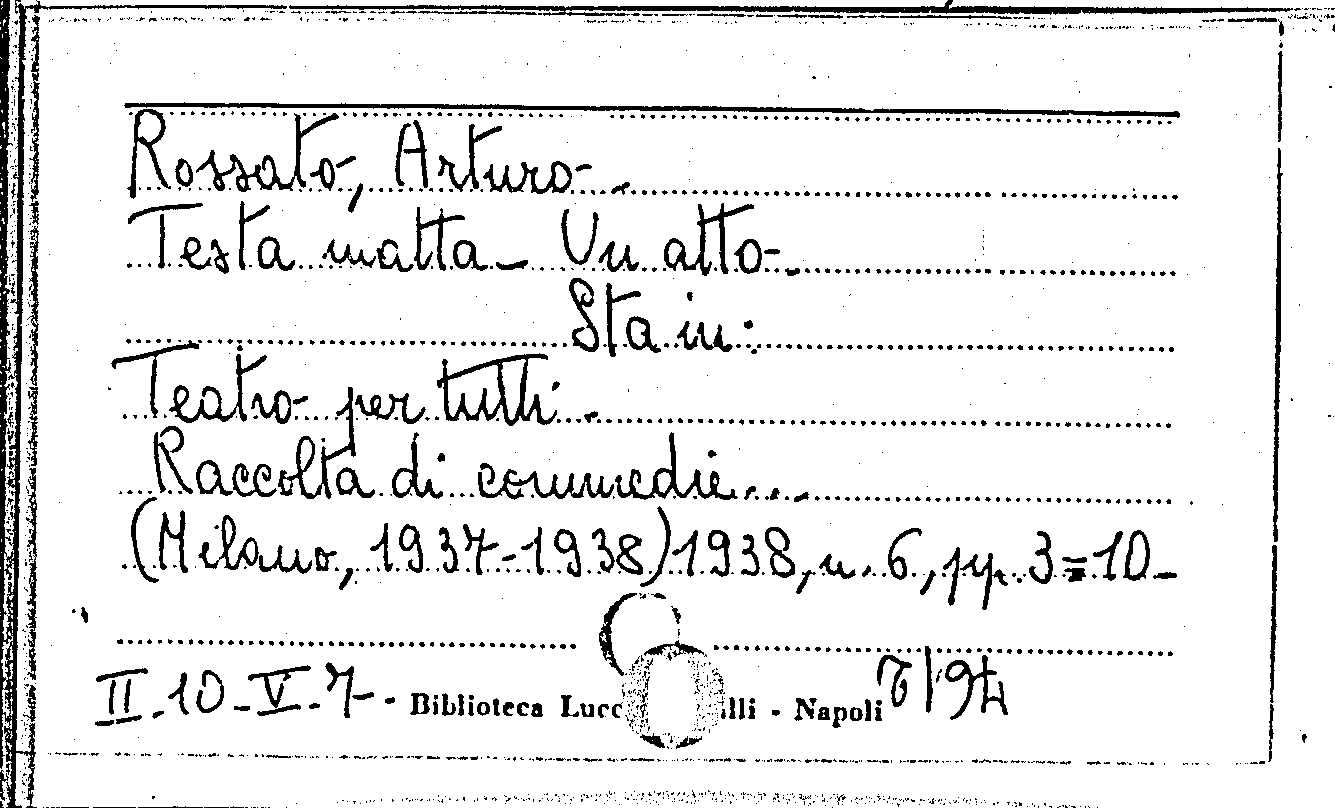 Rossato, Arturo.
Testa matta - Un atto.
Sta in:
Teatro per tutti.
Raccolta di commedie...
(Milano, 1937-1938) 1938, n. 6, pp. 3=10-
II-10-V-7- - Biblioteca Lucc lli - Napoli